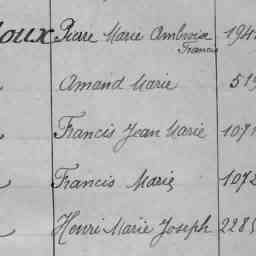 oux Pierre Marie Ambroise 194
Francis
Amand Marie 519
Francis Jean Marie 1071
Francis Marie 1072
Henri Marie Joseph 2285